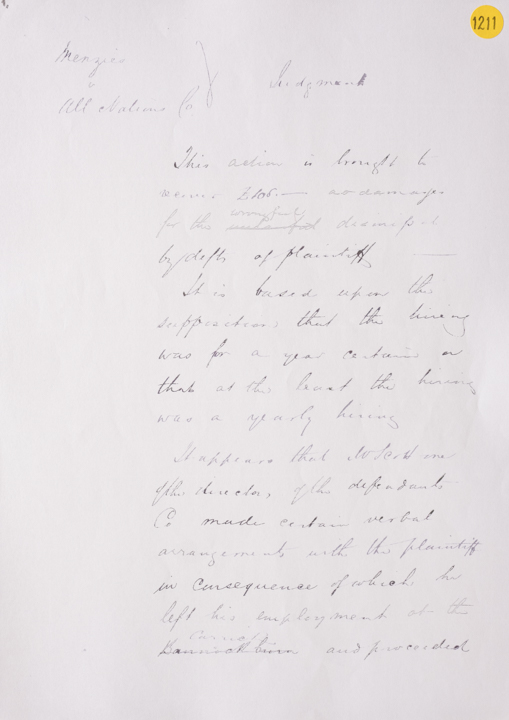 1211
Menzies
v
All Nations Co
Judgment
This action is brought to
recover £106.— as damages
for the wrongful dismissal
by defts of plaintiff —
It is based upon the
supposition that the hiring
was for a year certain or
that at the least the hiring
was a yearly hiring
It appears that Scott one
of the directors of the defendants
Co made certain verbal
arrangements with the plaintiff
in consequence of which he
left his employment at the
and proceeded